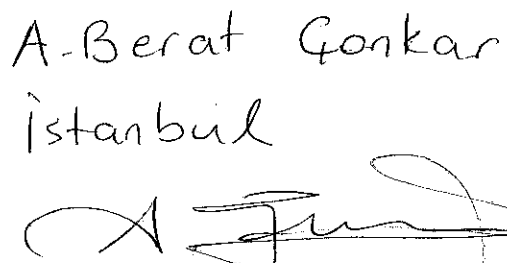 A-Berat Çonkar
İstanbul